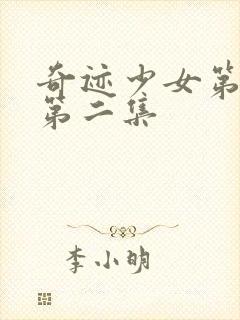 奇迹少女第
第二集
李小明